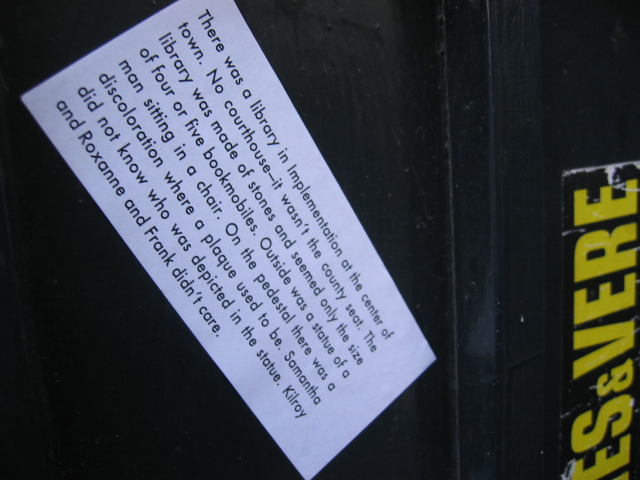 There was a library in Implementation at the center of
town. No courthouse—it wasn't the county seat. The
library was made of stones and seemed only the size
of four or five bookmobiles. Outside was a statue of a
man sitting in a chair. On the pedestal there was a
discoloration where a plaque used to be. Samantha
did not know who was depicted in the statue. Kilroy
and Roxanne and Frank didn't care.
ES&VERE